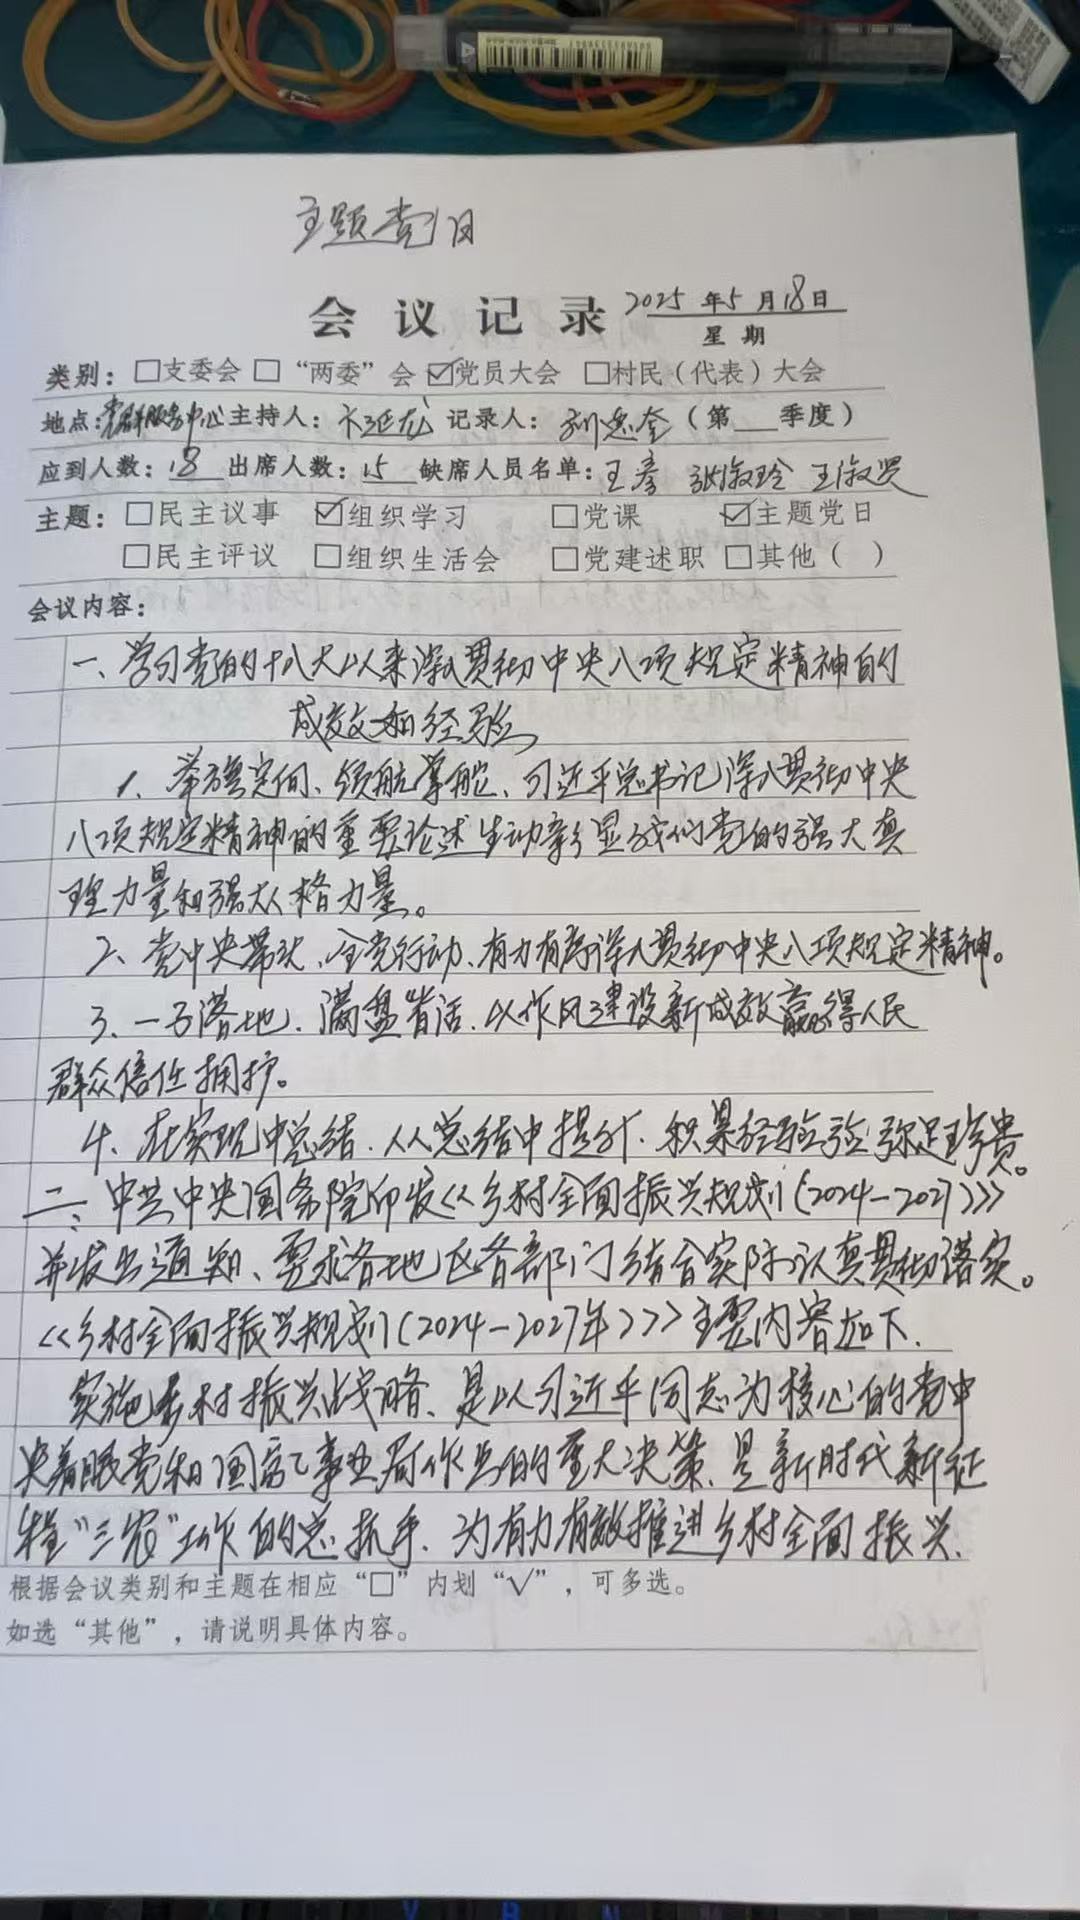 主题党日
会议记录 2025年5月18日
星期
类别：□支委会 □“两委”会 ☑党员大会 □村民（代表）大会
地点：党群服务中心 主持人：卞延龙 记录人：刘忠奎（第__季度）
应到人数：18 出席人数：15 缺席人员名单：王彦 张淑玲 王淑贤
主题：□民主议事 ☑组织学习 □党课 ☑主题党日
□民主评议 □组织生活会 □党建述职 □其他（ ）
会议内容：
一、学习党的十八大以来深入贯彻中央八项规定精神的
成效和经验
1、举旗定向、领航掌舵、习近平总书记深入贯彻中央
八项规定精神的重要论述生动彰显我们党的强大真
理力量和强大人格力量。
2、党中央带头、全党行动、有力有序深入贯彻中央八项规定精神。
3、一子落地、满盘皆活、以作风建设新成效赢得人民
群众信任拥护。
4、在实现中总结、从总结中提升、积累经验验弥足珍贵。
二、中共中央国务院印发《乡村全面振兴规划（2024－2027）》
并发出通知、要求各地区各部门结合实际认真贯彻落实。
《乡村全面振兴规划（2024－2027年）》主要内容如下、
实施乡村振兴战略、是以习近平同志为核心的党中
央着眼党和国家事业局作出的重大决策、是新时代新征
程“三农”工作的总抓手、为有力有效推进乡村全面振兴、
根据会议类别和主题在相应“□”内划“√”，可多选。
如选“其他”，请说明具体内容。